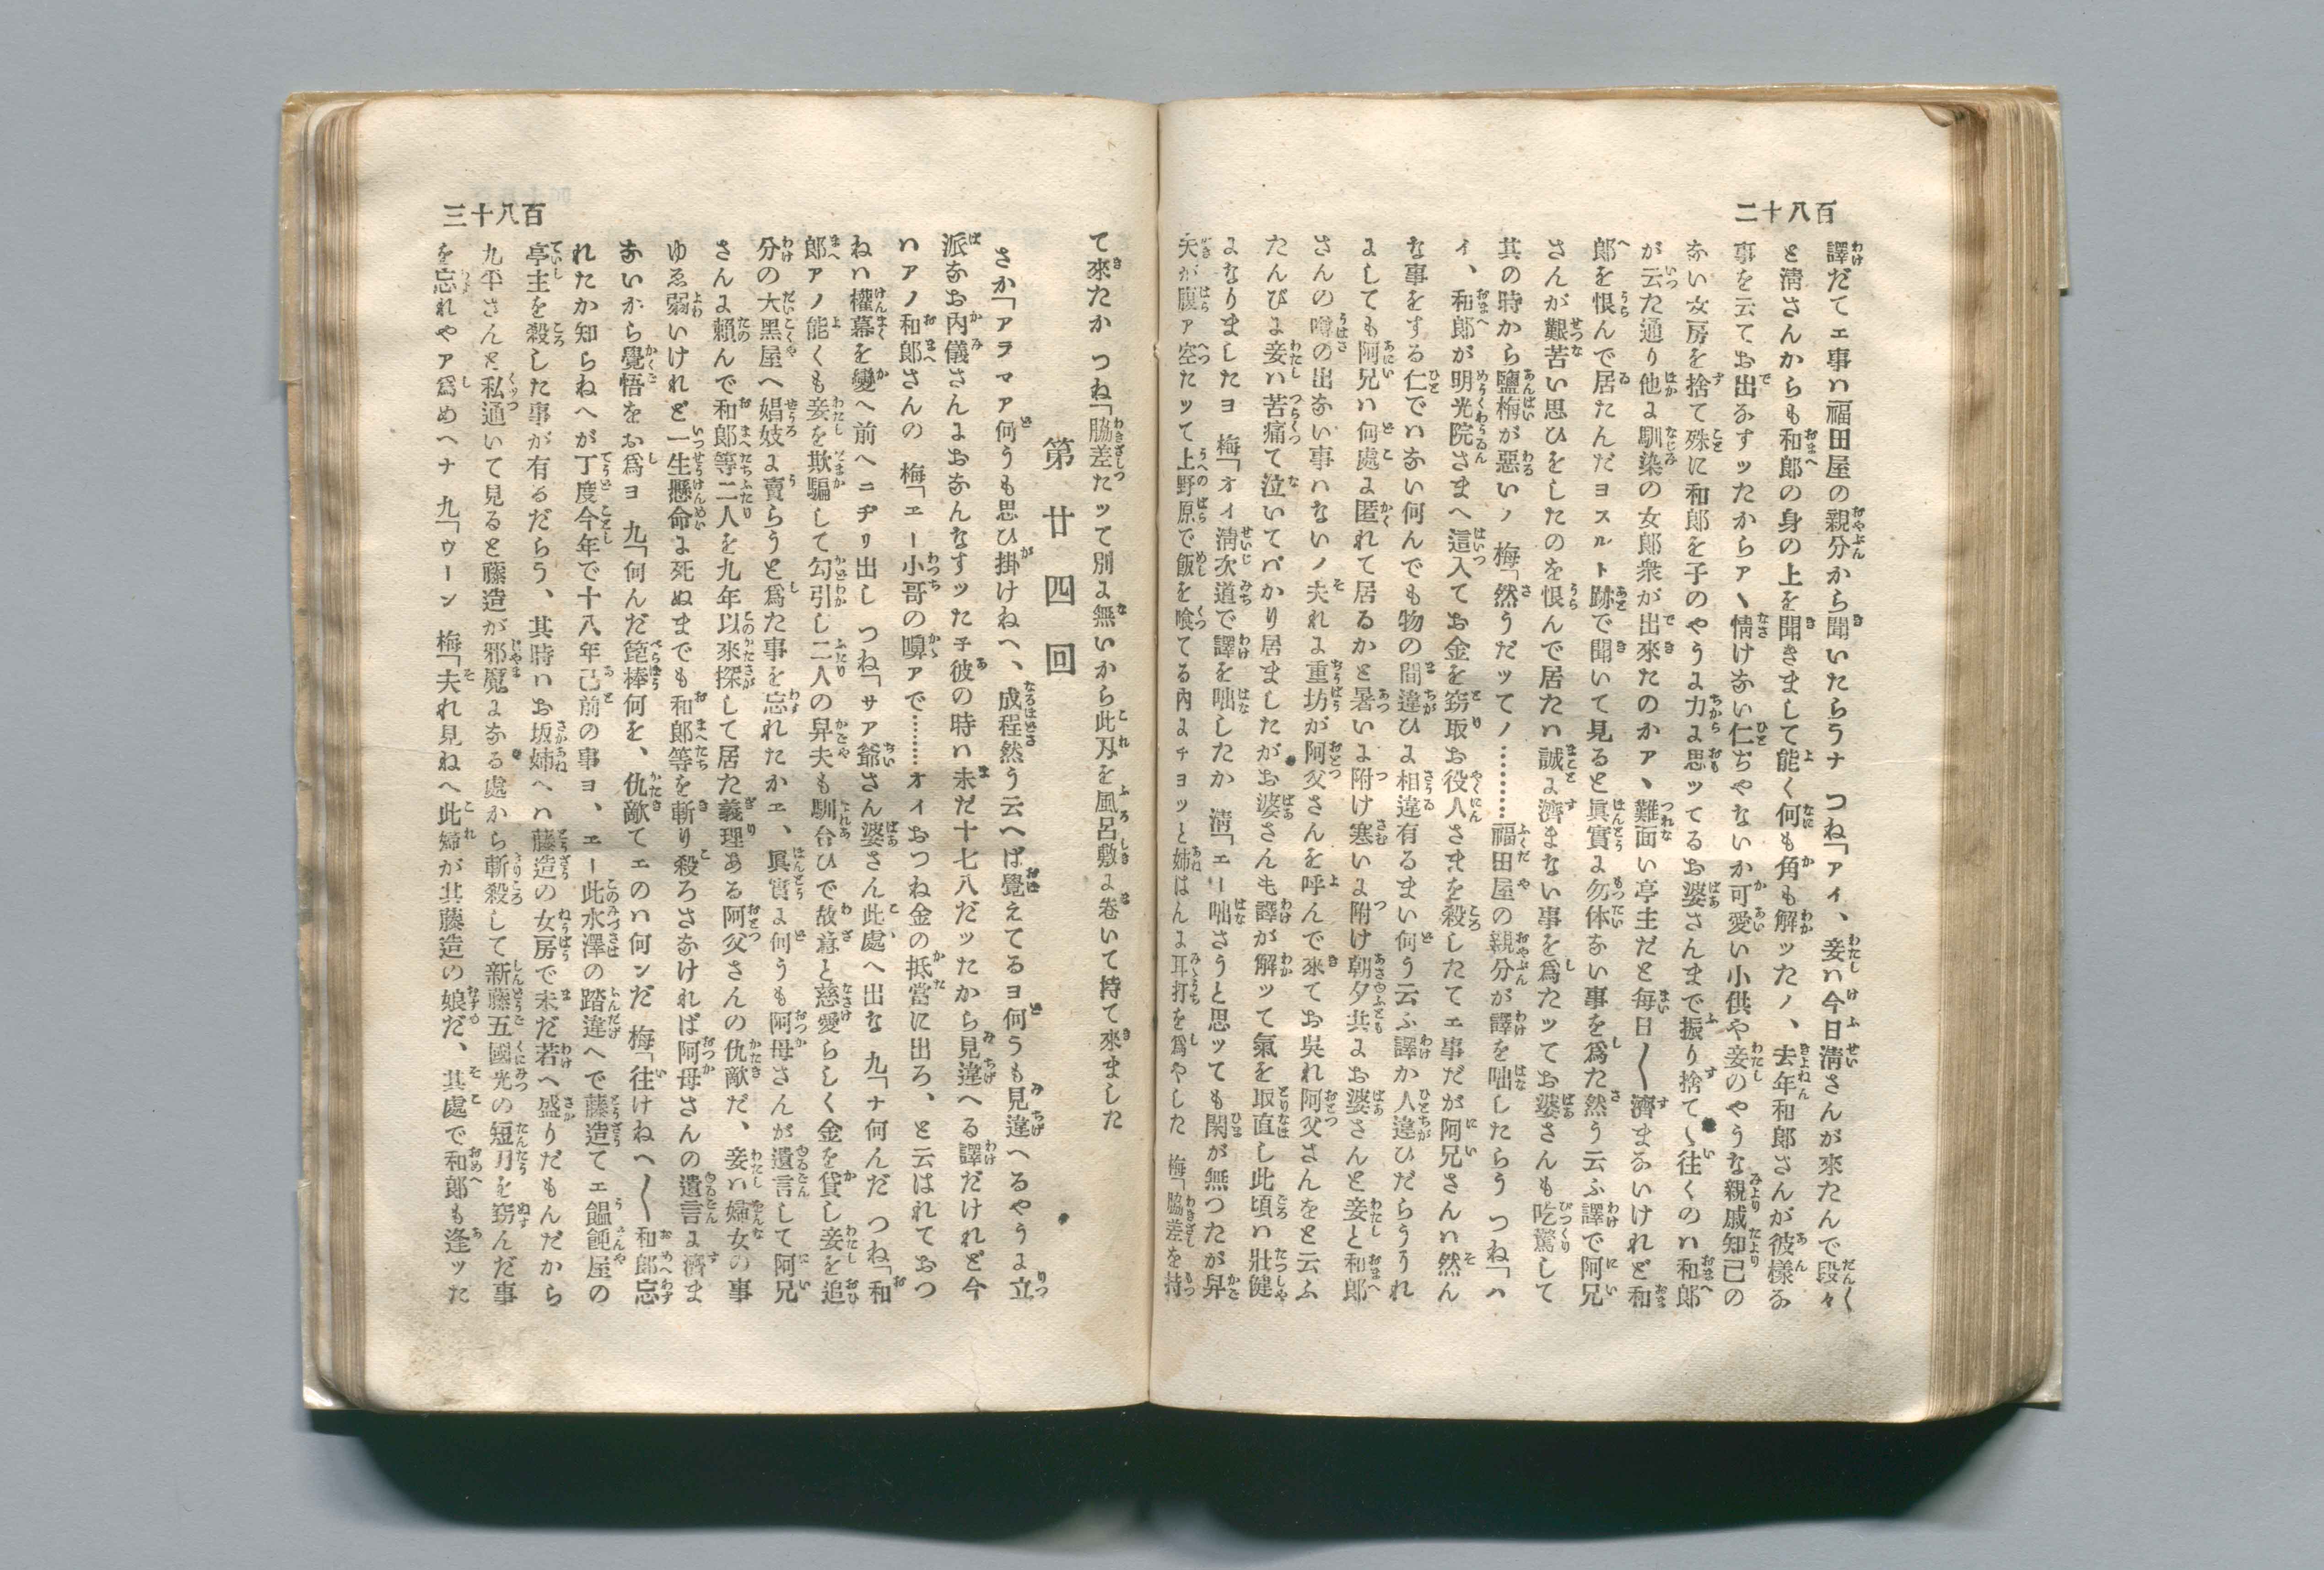 百八十二
譯だてエ事ハ福田屋の親分から聞いたらうナ　つね「アイ、妾ハ今日淸さんが來たんで段々
と淸さんからも和郎の身の上を聞きまして能く何も角も解ッたノ、去年和郎さんが彼樣な
事を云てお出なすッたからアヽ情けない仁ぢやないか可愛い小供や妾のやうな親戚知己の
ない女房を捨て殊に和郎を子のやうに力に思ッてるお婆さんまで振り捨てヽ往くのハ和郎
が云た通り他に馴染の女郎衆が出來たのかアヽ難面い亭主だと毎日〳〵濟まないけれど和
郎を恨んで居たんだヨスルト跡で聞いて見ると眞實に勿体ない事を爲た然う云ふ譯で阿兄
さんが艱苦い思ひをしたのを恨んで居たハ誠に濟まない事を爲たッてお婆さんも吃驚して
其の時から鹽梅が惡いノ　梅「然うだッてノ………福田屋の親分が譯を咄したらう　つね「ハ
イ、和郎が明光院さまへ這入てお金を窃取お役人さまを殺したてエ事だが阿兄さんハ然ん
な事をする仁でハない何んでも物の間違ひに相違有るまい何う云ふ譯か人違ひだらううれ
にしても阿兄ハ何處に匿れて居るかと暑いに附け寒いに附け朝夕共にお婆さんと妾と和郎
さんの噂の出ない事ハないノ夫れに重坊が阿父さんを呼んで來てお呉れ阿父さんをと云ふ
たんびに妾ハ苦痛て泣いてバかり居ましたがお婆さんも譯が解ッて氣を取直し此頃ハ壯健
になりましたヨ　梅「オイ淸次道で譯を咄したか　淸「エー咄さうと思ッても閑が無つたが舁
夫が腹ア空たッて上野原で飯を喰てる內にチョッと姉はんに耳打を爲やした　梅「脇差を持
百八十三
て來たか　つね「脇差たッて別に無いから此刄を風呂敷に卷いて持て來ました
第廿四回
さか「アラマア何うも思ひ掛けねへ、成程然う云へば覺えてるヨ何うも見違へるやうに立
派なお內儀さんにおなんなすッた子彼の時ハ未だ十七八だッたから見違へる譯だけれど今
ハアノ和郎さんの　梅「エー小哥の嚊アで………オイおつね金の抵當に出ろ、と云はれておつ
ねハ權幕を變へ前ヘニヂリ出し　つね「サア爺さん婆さん此處へ出な　九「ナ何んだ　つね「和
郎アノ能くも妾を欺騙して勾引し二人の舁夫も馴合ひで故意と慈愛らしく金を貸し妾を追
分の大黑屋へ娼妓に賣らうと爲た事を忘れたかエ、眞實に何うも阿母さんが遺言して阿兄
さんに賴んで和郎等二人を九年以來探して居た義理ある阿父さんの仇敵だ、妾ハ婦女の事
ゆゑ弱いけれど一生懸命に死ぬまでも和郎等を斬り殺ろさなけれバ阿母さんの遺言に濟ま
ないから覺悟をお爲ヨ　九「何んだ箆棒何を、仇敵てエのハ何ンだ　梅「往けねへ〳〵和郎忘
れたか知らねへが丁度今年で十八年己前の事ヨ、エー此水澤の踏違へで藤造てエ饂飩屋の
亭主を殺した事が有るだらう、其時ハお坂姉へハ藤造の女房で未だ若へ盛りだもんだから
九平さんと私通いて見ると藤造が邪魔になる處から斬殺して新藤五國光の短刀を窃んだ事
を忘れやア爲めヘナ　九「ウーン　梅「夫れ見ねへ此婦が其藤造の娘だ、其處で和郎も逢ッた